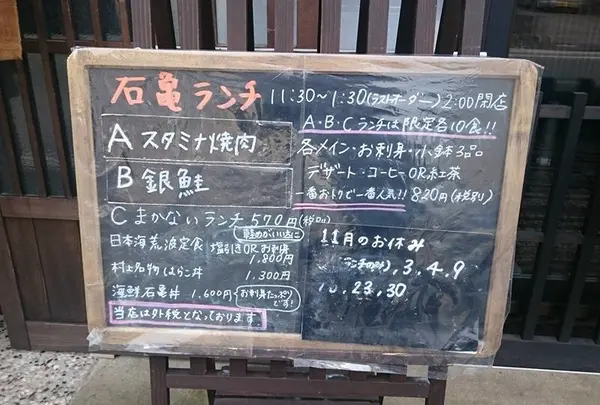 石亀ランチ 11:30～1:30(ラストオーダー) 2:00閉店
A スタミナ焼肉
B 銀鮭
C まかないランチ 570円(税別)
軽めがいい方に
日本海荒波定食 塩引きORお刺身
1,800円
村上名物はらこ丼
1,300円
海鮮石亀丼 1,600円 お刺身たっぷりです!
当店は外税となっております
A・B・Cランチは限定各10食!!
各メイン・お刺身・小鉢3品
デザート・コーヒーOR紅茶
一番おトクで一番人気!! 820円(税別)
11月のお休み
3,4,9
23,30